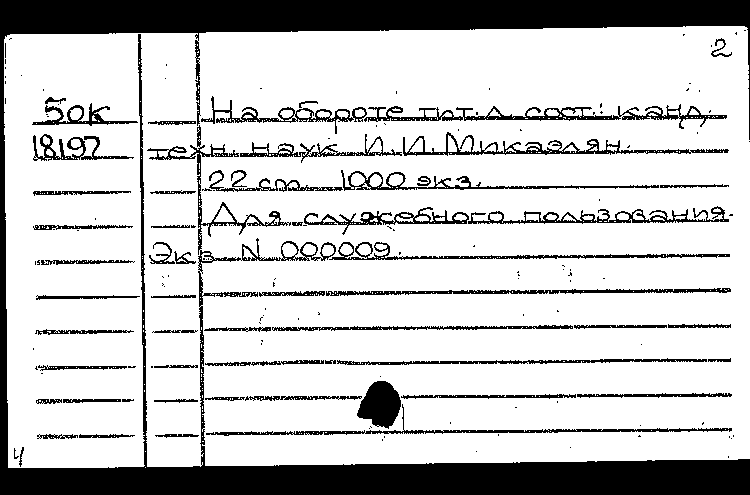 2
50К На обороте тит. л. сост.: канд.
18197 техн. наук И.И. Микаэлян.
22 см. 1000 экз.
Для служебного пользования.
Экз N 000009.
4